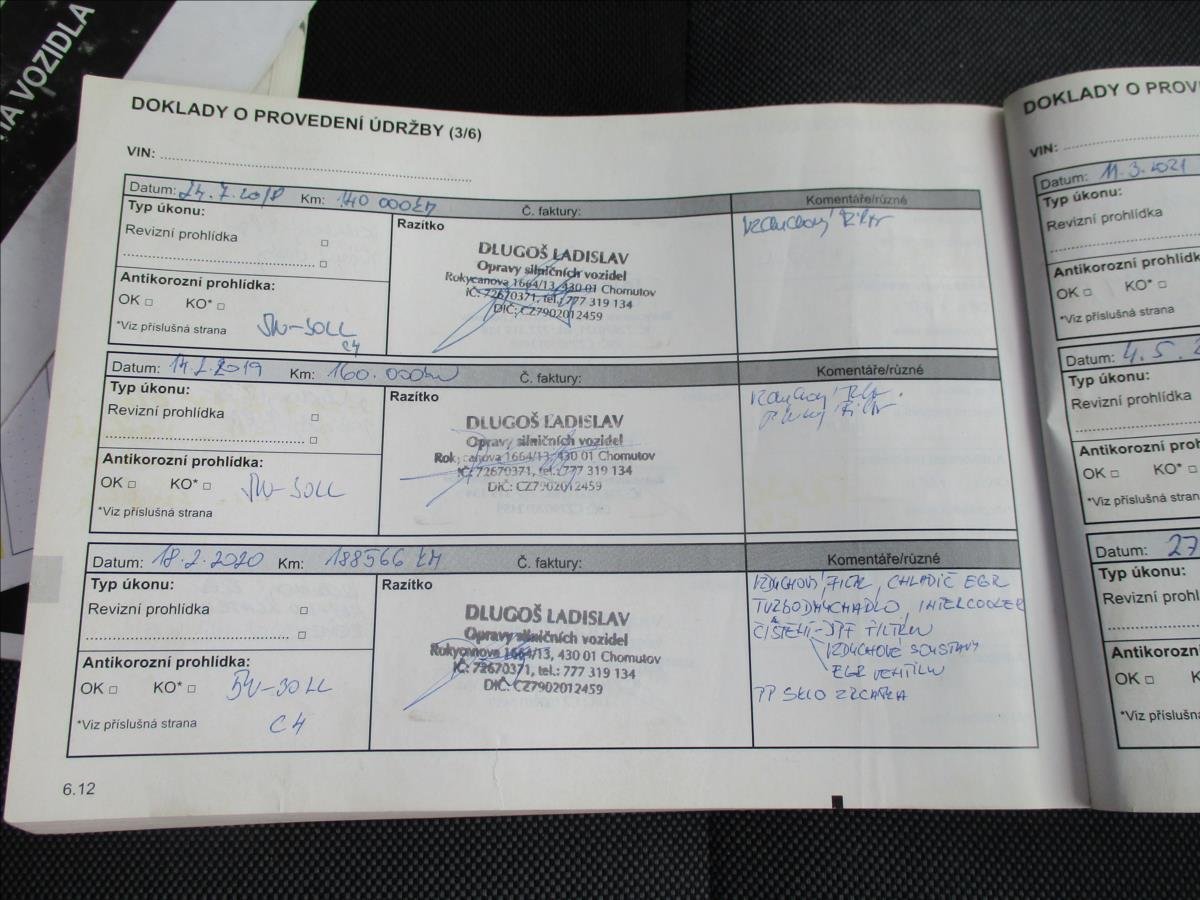 HA VOZIDLA
DOKLADY O PROVEDENÍ ÚDRŽBY (3/6)
VIN:
Datum: 24.7.2018 Km: 140 000KM Č. faktury: Komentáře/různé
Typ úkonu:
Revizní prohlídka
Antikorozní prohlídka:
OK KO*
*Viz příslušná strana
5W-30LL
C4
Razítko
DLUGOŠ LADISLAV
Opravy silničních vozidel
Rokycanova 1664/13, 430 01 Chomutov
IČ: 72670371, tel.: 777 319 134
DIČ: CZ7902012459
Vzduchový filtr
Datum: 14.2.2019 Km: 160.000km Č. faktury: Komentáře/různé
Typ úkonu:
Revizní prohlídka
Antikorozní prohlídka:
OK KO* 5W-30LL
*Viz příslušná strana
Razítko
DLUGOŠ LADISLAV
Opravy silničních vozidel
Rokycanova 1664/13, 430 01 Chomutov
IČ: 72670371, tel.: 777 319 134
DIČ: CZ7902012459
Vzduchový filtr
filtr
Datum: 18.2.2020 Km: 188566 KM Č. faktury: Komentáře/různé
Typ úkonu:
Revizní prohlídka
Antikorozní prohlídka:
OK KO* 5W-30LL
*Viz příslušná strana C4
Razítko
DLUGOŠ LADISLAV
Opravy silničních vozidel
Rokycanova 1664/13, 430 01 Chomutov
IČ: 72670371, tel.: 777 319 134
DIČ: CZ7902012459
VZDUCHOVÝ FILTR, CHLADIČ EGR
TURBODMYCHADLO, INTERCOOLER
ČIŠTĚNÍ - DPF FILTRU
VZDUCHOVÉ SOUSTAVY
EGR VENTILU
PP SKLO ZRCÁTKA
6.12
DOKLADY O PROVE
VIN:
Datum: 11.3.2021
Typ úkonu:
Revizní prohlídka
Antikorozní prohlídk
OK KO*
*Viz příslušná strana
Datum: 4.5.2
Typ úkonu:
Revizní prohlídka
Antikorozní prohl
OK KO*
*Viz příslušná stran
Datum: 27
Typ úkonu:
Revizní prohl
Antikorozní
OK
*Viz příslušn